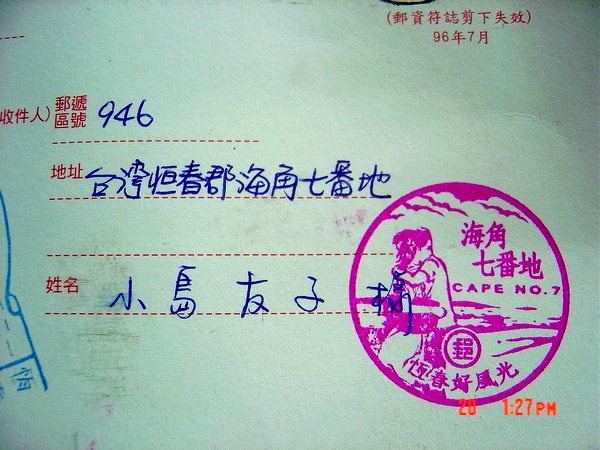 (郵資符誌剪下失效)
96年7月
收件人)郵遞區號 946
地址 台灣恒春郡海角七番地
姓名 小島友子 様
海角
七番地
CAPE NO.7
郵
恆春好風光
恒
20 1:27PM